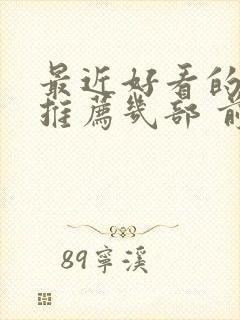 最近好看的
推薦幾部 前
89寧溪